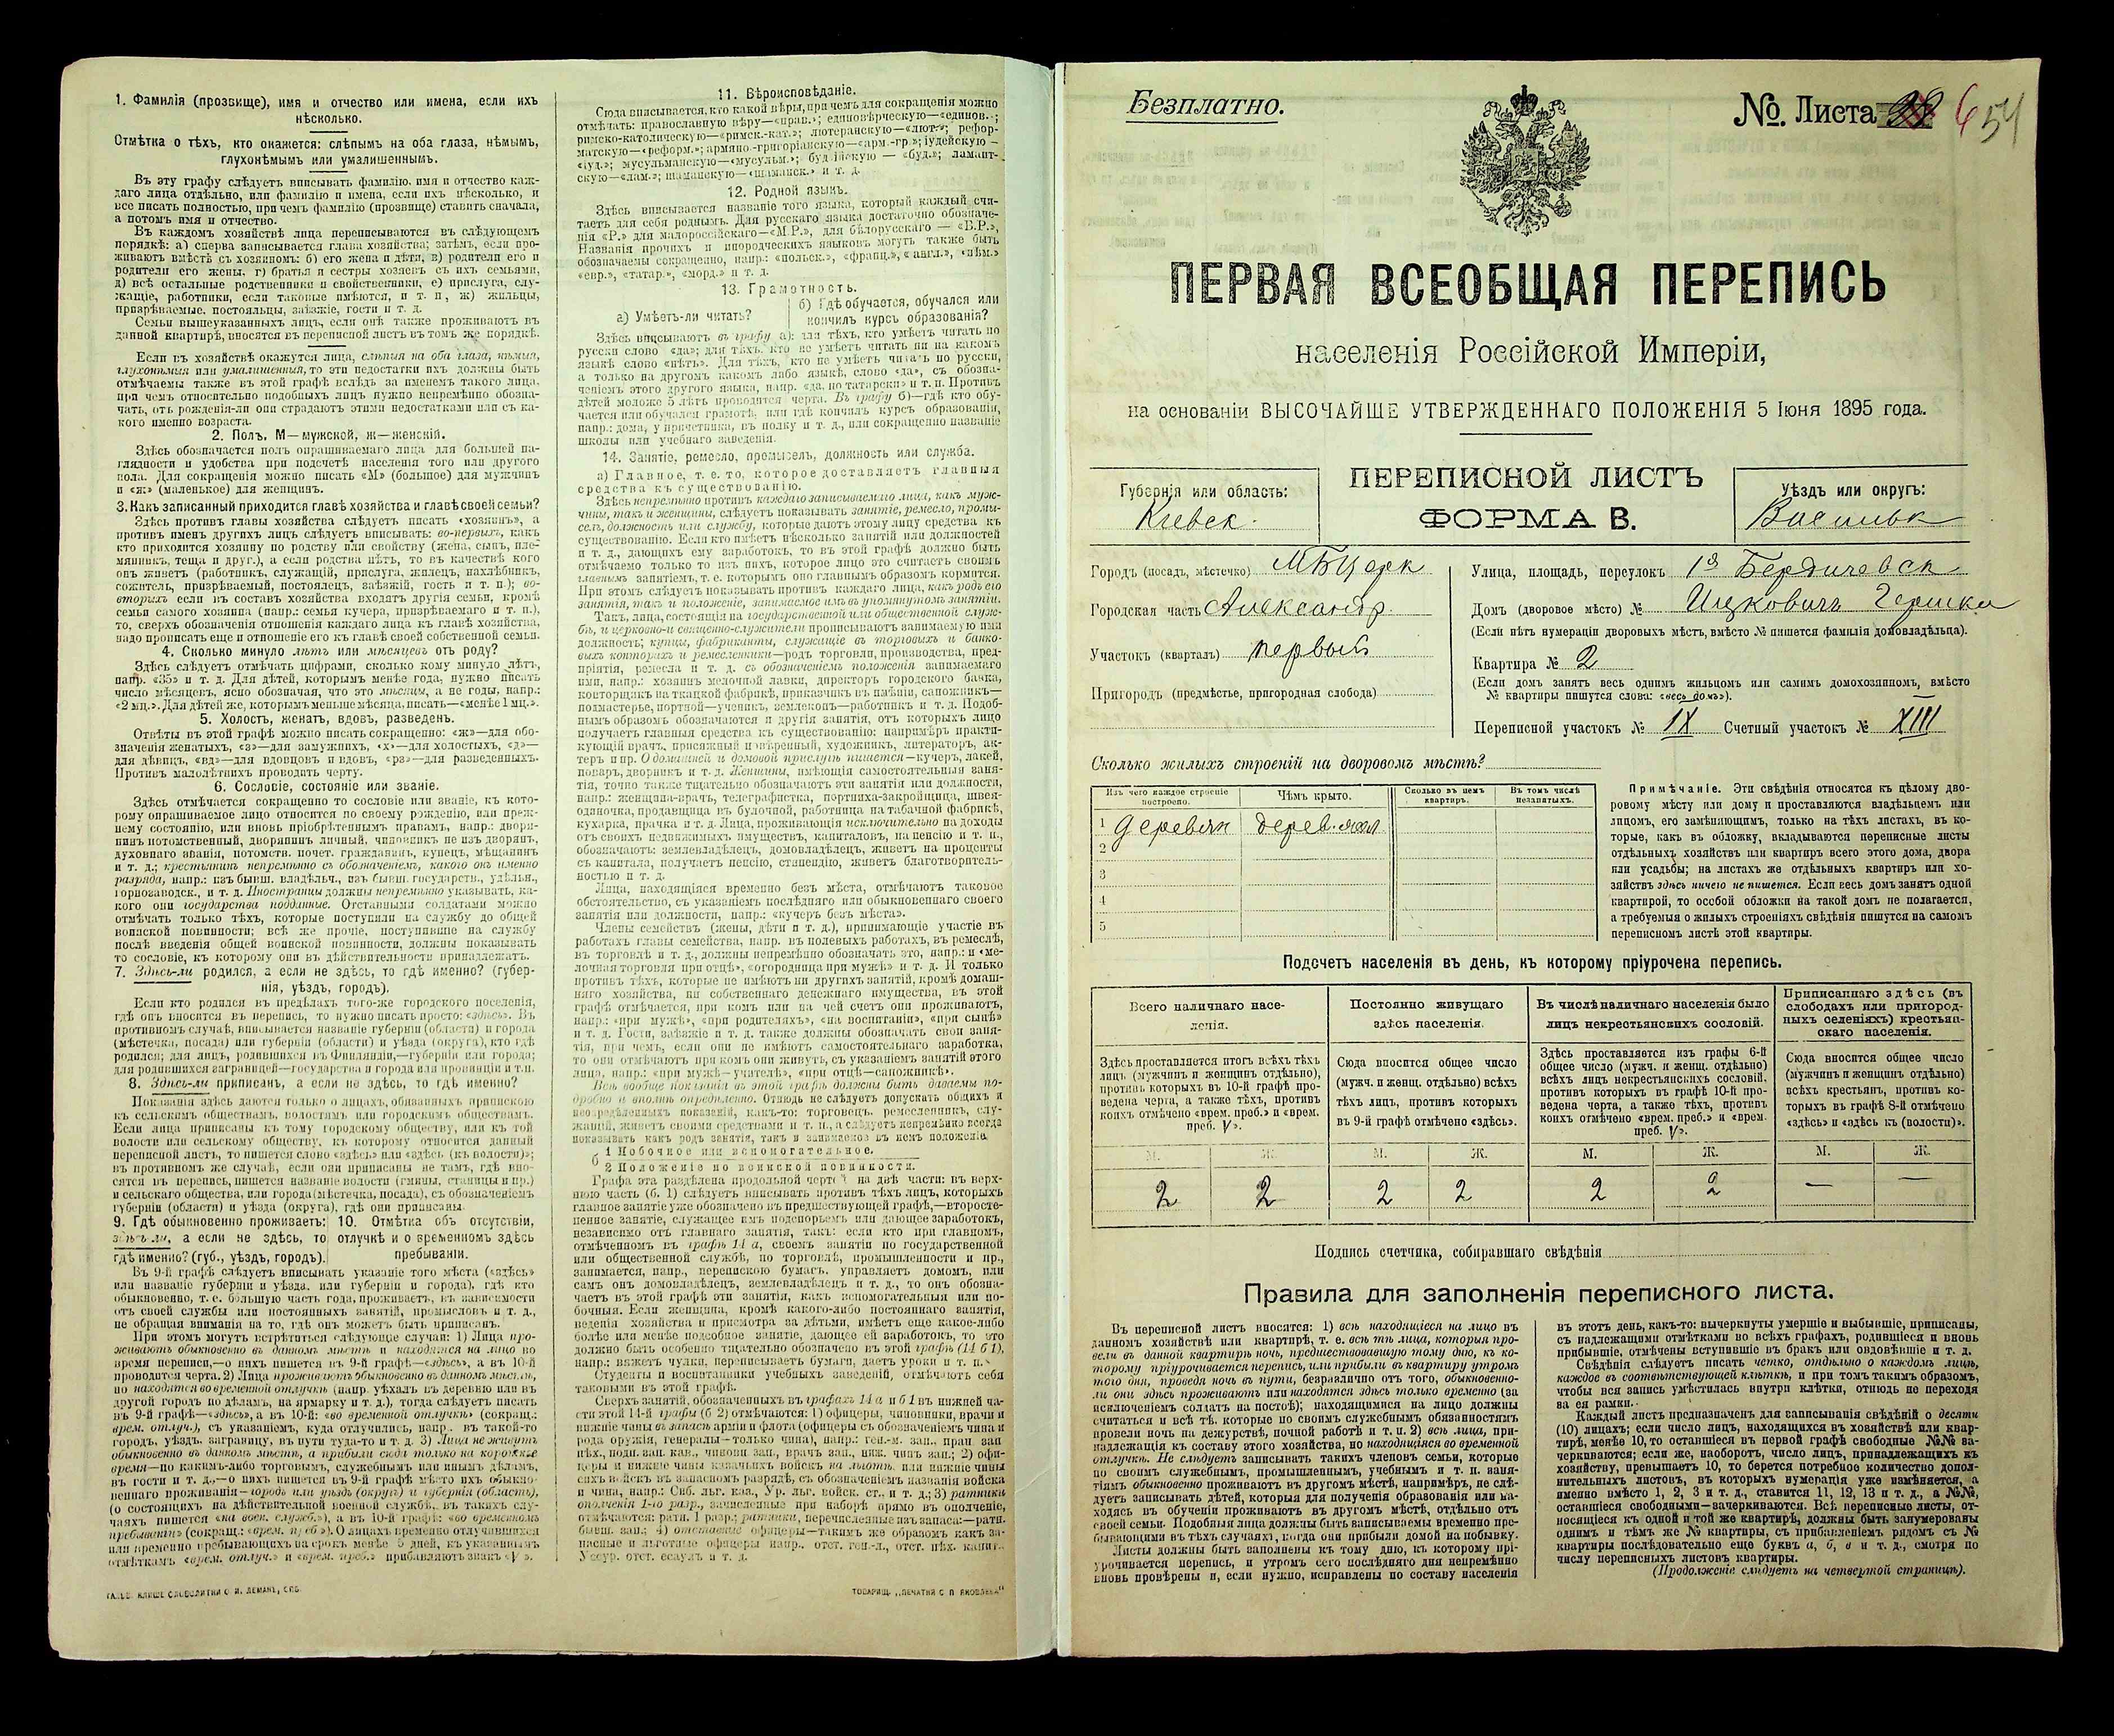 1. Фамилія (прозвище), имя и отчество или имена, если ихъ
нѣсколько.
Отмѣтка о тѣхъ, кто окажется: слѣпымъ на оба глаза, нѣмымъ,
глухонѣмымъ или умалишеннымъ.
Въ эту графу слѣдуетъ вписывать фамилію, имя и отчество каж-
даго лица отдѣльно, или фамилію и имена, если ихъ нѣсколько, и
все писать полностью, при чемъ фамилію (прозвище) ставить сначала,
а потомъ имя и отчество.
Въ каждомъ хозяйствѣ лица переписываются въ слѣдующемъ
порядкѣ: а) сперва записывается глава хозяйства; затѣмъ, если про-
живаютъ вмѣстѣ съ хозяиномъ: б) его жена и дѣти, в) родители его и
родители его жены, г) братья и сестры хозяевъ съ ихъ семьями,
д) всѣ остальные родственники и свойственники, е) прислуга, слу-
жащіе, работники, если таковые имѣются, и т. п., ж) жильцы,
призрѣваемые, постояльцы, заѣзжіе, гости и т. д.
Семьи вышеуказанныхъ лицъ, если онѣ также проживаютъ въ
данной квартирѣ, вносятся въ переписной листъ въ томъ же порядкѣ.
Если въ хозяйствѣ окажутся лица, слѣпыя на оба глаза, нѣмыя,
глухонѣмыя или умалишенныя, то эти недостатки ихъ должны быть
отмѣчаемы также въ этой графѣ вслѣдъ за именемъ такого лица,
при чемъ относительно подобныхъ лицъ нужно непремѣнно обозна-
чать, отъ рожденія-ли они страдаютъ этими недостатками или съ ка-
кого именно возраста.
2. Полъ, М—мужской, ж—женскій.
Здѣсь обозначается полъ опрашиваемаго лица для большей на-
глядности и удобства при подсчетѣ населенія того или другого
пола. Для сокращенія можно писать «М» (большое) для мужчинъ
и «ж» (маленькое) для женщинъ.
3. Какъ записанный приходится главѣ хозяйства и главѣ своей семьи?
Здѣсь противъ главы хозяйства слѣдуетъ писать «хозяинъ», а
противъ именъ другихъ лицъ слѣдуетъ вписывать: во-первыхъ, какъ
кто приходится хозяину по родству или свойству (жена, сынъ, пле-
мянникъ, теща и друг.), а если родства нѣтъ, то въ качествѣ кого
онъ живетъ (работникъ, служащій, прислуга, жилецъ, нахлѣбникъ,
сожитель, призрѣваемый, постоялецъ, заѣзжій, гость и т. п.); во-
вторыхъ если въ составъ хозяйства входятъ другія семьи, кромѣ
семьи самого хозяина (напр.: семья кучера, призрѣваемаго и т. п.),
то, сверхъ обозначенія отношенія каждаго лица къ главѣ хозяйства,
надо прописать еще и отношеніе его къ главѣ своей собственной семьи.
4. Сколько минуло лѣтъ или мѣсяцевъ отъ роду?
Здѣсь слѣдуетъ отмѣчать цифрами, сколько кому минуло лѣтъ,
напр. «35» и т. д. Для дѣтей, которымъ менѣе года, нужно писать
число мѣсяцевъ, ясно обозначая, что это мѣсяцы, а не годы, напр.:
«2 мц.». Для дѣтей же, которымъ меньше мѣсяца, писать—«менѣе 1 мц.».
5. Холостъ, женатъ, вдовъ, разведенъ.
Отвѣты въ этой графѣ можно писать сокращенно: «ж»—для обо-
значенія женатыхъ, «з»—для замужнихъ, «х»—для холостыхъ, «д»—
для дѣвицъ, «вд»—для вдовцовъ и вдовъ, «рз»—для разведенныхъ.
Противъ малолѣтнихъ проводить черту.
6. Сословіе, состояніе или званіе.
Здѣсь отмѣчается сокращенно то сословіе или званіе, къ кото-
рому опрашиваемое лицо относится по своему рожденію, или преж-
нему состоянію, или вновь пріобрѣтеннымъ правамъ, напр.: дворя-
нинъ потомственный, дворянинъ личный, чиновникъ не изъ дворянъ,
духовнаго званія, потомств. почет. гражданинъ, купецъ, мѣщанинъ
и т. д.; крестьянинъ непремѣнно съ обозначеніемъ, какого онъ именно
разряда, напр.: изъ бывш. владѣльч., изъ бывш. государств., удѣльн.,
горнозаводск., и т. д. Иностранцы должны непремѣнно указывать, ка-
кого они государства подданные. Отставными солдатами можно
отмѣчать только тѣхъ, которые поступили на службу до общей
воинской повинности; всѣ же прочіе, поступившіе на службу
послѣ введенія общей воинской повинности, должны показывать
то сословіе, къ которому они въ дѣйствительности принадлежатъ.
7. Здѣсь-ли родился, а если не здѣсь, то гдѣ именно? (губер-
нія, уѣздъ, городъ).
Если кто родился въ предѣлахъ того-же городского поселенія,
гдѣ онъ вносится въ перепись, то нужно писать просто: «здѣсь». Въ
противномъ случаѣ, вписывается названіе губерніи (области) и города
(мѣстечка, посада) или губерніи (области) и уѣзда (округа), кто гдѣ
родился; для лицъ, родившихся въ Финляндіи,—губерніи или города;
для родившихся заграницей—государства и города или провинціи и т.п.
8. Здѣсь-ли приписанъ, а если не здѣсь, то гдѣ именно?
Показанія здѣсь даются только о лицахъ, обязанныхъ припискою
къ сельскимъ обществамъ, волостямъ или городскимъ обществамъ.
Если лица приписаны къ тому городскому обществу, или къ той
волости или сельскому обществу, къ которому относится данный
переписной листъ, то пишется слово «здѣсь» или «здѣсь (къ волости)»;
въ противномъ же случаѣ, если они приписаны не тамъ, гдѣ вно-
сятся въ перепись, пишется названіе волости (гмины, станицы и пр.)
и сельскаго общества, или города (мѣстечка, посада), съ обозначеніемъ
губерніи (области) и уѣзда (округа), гдѣ они приписаны.
9. Гдѣ обыкновенно проживаетъ:
здѣсь-ли, а если не здѣсь, то
гдѣ именно? (губ., уѣздъ, городъ).
10. Отмѣтка объ отсутствіи,
отлучкѣ и о временномъ здѣсь
пребываніи.
Въ 9-й графѣ слѣдуетъ вписывать указаніе того мѣста («здѣсь»
или названіе губерніи и уѣзда, или губерніи и города), гдѣ кто
обыкновенно, т. е. большую часть года, проживаетъ, въ зависимости
отъ своей службы или постоянныхъ занятій, промысловъ и т. д.,
не обращая вниманія на то, гдѣ онъ можетъ быть приписанъ.
При этомъ могутъ встрѣтиться слѣдующіе случаи: 1) Лица про-
живаютъ обыкновенно въ данномъ мѣстѣ и находятся на лицо во
время переписи,—о нихъ пишется въ 9-й графѣ—«здѣсь», а въ 10-й
проводится черта. 2) Лица проживаютъ обыкновенно въ данномъ мѣстѣ,
но находятся во временной отлучкѣ (напр. уѣхалъ въ деревню или въ
другой городъ по дѣламъ, на ярмарку и т. д.), тогда слѣдуетъ писать
въ 9-й графѣ—«здѣсь», а въ 10-й: «во временной отлучкѣ» (сокращ.:
врем. отлуч.), съ указаніемъ, куда отлучились, напр. въ такой-то
городъ, уѣздъ, заграницу, въ пути туда-то и т. д. 3) Лица не живутъ
обыкновенно въ данномъ мѣстѣ, а прибыли сюда только на короткое
время—по какимъ-либо торговымъ, служебнымъ или инымъ дѣламъ,
въ гости и т. д.,—о нихъ пишется въ 9-й графѣ мѣсто ихъ обыкно-
веннаго проживанія—городъ или уѣздъ (округъ) и губернія (область),
(о состоящихъ на дѣйствительной военной службѣ, въ такихъ слу-
чаяхъ пишется «на воен. служб.»), а въ 10-й графѣ: «во временномъ
пребываніи» (сокращ.: «врем. преб»). О лицахъ временно отлучившихся
или временно пребывающихъ на срокъ менѣе 5 дней, къ указаннымъ
отмѣткамъ «врем. отлуч.» и «врем. преб.» прибавляютъ знакъ «V».
11. Вѣроисповѣданіе.
Сюда вписывается, кто какой вѣры, при чемъ для сокращенія можно
отмѣчать: православную вѣру—«прав.»; единовѣрческую—«единов.»;
римско-католическую—«римск.-кат.»; лютеранскую—«лют.»; рефор-
матскую—«реформ.»; армяно-григоріанскую—«арм.-гр.»; іудейскую—
«іуд.»; мусульманскую—«мусульм.»; буддійскую—«буд.»; ламаит-
скую—«лам.»; шаманскую—«шаманск.» и т. д.
12. Родной языкъ.
Здѣсь вписывается названіе того языка, который каждый счи-
таетъ для себя роднымъ. Для русскаго языка достаточно обозначе-
нія «Р.» для малороссійскаго—«М.Р.», для бѣлорусскаго—«Б.Р.»,
Названія прочихъ и инородческихъ языковъ могутъ также быть
обозначаемы сокращенно, напр.: «польск.», «франц.», «англ.», «нѣм.»
«евр.», «татар.», «морд.» и т. д.
13. Грамотность.
а) Умѣетъ-ли читать?
б) Гдѣ обучается, обучался или
кончилъ курсъ образованія?
Здѣсь вписываются въ графу а): для тѣхъ, кто умѣетъ читать по
русски слово «да»; для тѣхъ, кто не умѣетъ читать ни на какомъ
языкѣ слово «нѣтъ». Для тѣхъ, кто не умѣетъ читать по русски,
а только на другомъ какомъ либо языкѣ, слово «да», съ обозна-
ченіемъ этого другого языка, напр. «да, по татарски» и т. п. Противъ
дѣтей моложе 5 лѣтъ проводится черта. Въ графу б)—гдѣ кто обу-
чается или обучался грамотѣ, или гдѣ кончилъ курсъ образованія,
напр.: дома, у причетника, въ полку и т. д., или сокращенно названіе
школы или учебнаго заведенія.
14. Занятіе, ремесло, промыселъ, должность или служба.
а) Главное, т. е. то, которое доставляетъ главныя
средства къ существованію.
Здѣсь непремѣнно противъ каждаго записываемаго лица, какъ муж-
чины, такъ и женщины, слѣдуетъ показывать занятіе, ремесло, промы-
селъ, должность или службу, которые даютъ этому лицу средства къ
существованію. Если кто имѣетъ нѣсколько занятій или должностей
и т. д., дающихъ ему заработокъ, то въ этой графѣ должно быть
отмѣчаемо только то изъ нихъ, которое лицо это считаетъ своимъ
главнымъ занятіемъ, т. е. которымъ оно главнымъ образомъ кормится.
При этомъ слѣдуетъ показывать противъ каждаго лица, какъ родъ его
занятія, такъ и положеніе, занимаемое имъ въ упомянутомъ занятіи.
Такъ, лица, состоящія на государственной или общественной служ-
бѣ, и церковно-и священно-служители прописываютъ занимаемую ими
должность; купцы, фабриканты, служащіе въ торговыхъ и банко-
выхъ конторахъ и ремесленники—родъ торговли, производства, пред-
пріятія, ремесла и т. д. съ обозначеніемъ положенія занимаемаго
ими, напр.: хозяинъ мелочной лавки, директоръ городского банка,
конторщикъ на ткацкой фабрикѣ, приказчикъ въ имѣніи, сапожникъ—
подмастерье, портной—ученикъ, землекопъ—работникъ и т. д. Подоб-
нымъ образомъ обозначаются и другія занятія, отъ которыхъ лицо
получаетъ главныя средства къ существованію: напримѣръ практи-
кующій врачъ, присяжный повѣренный, художникъ, литераторъ, ак-
теръ и пр. О домашней и домовой прислугѣ пишется—кучеръ, лакей,
поваръ, дворникъ и т. д. Женщины, имѣющія самостоятельныя заня-
тія, точно также тщательно обозначаютъ эти занятія или должности,
напр.: женщина-врачъ, телеграфистка, портниха-закройщица, швея-
одиночка, продавщица въ булочной, работница на табачной фабрикѣ,
кухарка, прачка и т. д. Лица, проживающія исключительно на доходы
отъ своихъ недвижимыхъ имуществъ, капиталовъ, на пенсію и т. п.,
обозначаютъ: землевладѣлецъ, домовладѣлецъ, живетъ на проценты
съ капитала, получаетъ пенсію, стипендію, живетъ благотворитель-
ностью и т. д.
Лица, находящіяся временно безъ мѣста, отмѣчаютъ таковое
обстоятельство, съ указаніемъ послѣдняго или обыкновеннаго своего
занятія или должности, напр.: «кучеръ безъ мѣста».
Члены семействъ (жены, дѣти и т. д.), принимающіе участіе въ
работахъ главы семейства, напр. въ полевыхъ работахъ, въ ремеслѣ,
въ торговлѣ и т. д., должны непремѣнно обозначать это, напр.: и «ме-
лочная торговля при отцѣ», «огородница при мужѣ» и т. д. И только
противъ тѣхъ, которые не имѣютъ ни другихъ занятій, кромѣ домаш-
няго хозяйства, ни собственнаго денежнаго имущества, въ этой
графѣ отмѣчается, при комъ или на чей счетъ они проживаютъ,
напр.: «при мужѣ», «при родителяхъ», «на воспитаніи», «при сынѣ»
и т. д. Гости, заѣзжіе и т. д. также должны обозначать свои заня-
тія, при чемъ, если они не имѣютъ самостоятельнаго заработка,
то они отмѣчаютъ при комъ они живутъ, съ указаніемъ занятій этого
лица, напр.: «при мужѣ—учителѣ», «при отцѣ—сапожникѣ».
Всѣ вообще показанія въ этой графѣ должны быть даваемы по-
дробно и вполнѣ опредѣленно. Отнюдь не слѣдуетъ допускать общихъ и
неопредѣленныхъ показаній, какъ-то: торговецъ, ремесленникъ, слу-
жащій, живетъ своими средствами и т. п., а слѣдуетъ непремѣнно всегда
показывать какъ родъ занятія, такъ и занимаемое въ немъ положеніе.
б
1 Побочное или вспомогательное.
2 Положеніе по воинской повинности.
Графа эта раздѣлена продольной чертой на двѣ части: въ верх-
нюю часть (б. 1) слѣдуетъ вписывать противъ тѣхъ лицъ, которыхъ
главное занятіе уже обозначено въ предшествующей графѣ,—второсте-
пенное занятіе, служащее имъ подспорьемъ или дающее заработокъ,
независимо отъ главнаго занятія, такъ: если кто при главномъ,
отмѣченномъ въ графѣ 14 а, своемъ занятіи по государственной
или общественной службѣ, по торговлѣ, промышленности и пр.,
занимается, напр., перепискою бумагъ, управляетъ домомъ, или
самъ онъ домовладѣлецъ, землевладѣлецъ и т. д., то онъ обозна-
чаетъ въ этой графѣ эти занятія, какъ вспомогательныя или по-
бочныя. Если женщина, кромѣ какого-либо постояннаго занятія,
веденія хозяйства и присмотра за дѣтьми, имѣетъ еще какое-либо
болѣе или менѣе подсобное занятіе, дающее ей заработокъ, то это
должно быть особенно тщательно обозначено въ этой графѣ (14 б 1),
напр.: вяжетъ чулки, переписываетъ бумаги, даетъ уроки и т. п.
Студенты и воспитанники учебныхъ заведеній, отмѣчаютъ себя
таковыми въ этой графѣ.
Сверхъ занятій, обозначенныхъ въ графахъ 14 а и б 1 въ нижней ча-
сти этой 14-й графы (б 2) отмѣчаются: 1) офицеры, чиновники, врачи и
нижніе чины въ запасѣ арміи и флота (офицеры съ обозначеніемъ чина и
рода оружія, генералы—только чина), напр.: ген.-м. зап., прап. зап.
пѣх., подп. зап. кав., чиновн. зап., врач. зап., ниж. чин. зап.; 2) офи-
церы и нижніе чины казачьихъ войскъ на льготѣ, или нижніе чины
сихъ войскъ въ запасномъ разрядѣ, съ обозначеніемъ названія войска
и чина, напр.: Сиб. льг. каз., Ур. льг. войск. ст., и т. д.; 3) ратники
ополченія 1-го разр., зачисленные при наборѣ прямо въ ополченіе,
отмѣчаются: ратн. 1 разр.; ратники, перечисленные изъ запаса:—ратн.
бывш. зап.: 4) отставные офицеры—такимъ же образомъ какъ за-
пасные и льготные офицеры напр., отст. ген.-л., отст. пѣх. капит.,
Уссур. отст. есаулъ и т. д.
ТОВАРИЩ. „ПЕЧАТНЯ С. П. ЯКОВЛЕВА“
Безплатно.
№ Листа 6 54
ПЕРВАЯ ВСЕОБЩАЯ ПЕРЕПИСЬ
населенія Россійской Имперіи,
на основаніи ВЫСОЧАЙШЕ УТВЕРЖДЕННАГО ПОЛОЖЕНІЯ 5 Іюня 1895 года.
Губернія или область:
Кіевск.
ПЕРЕПИСНОЙ ЛИСТЪ
ФОРМА В.
Уѣздъ или округъ:
Васильк
Городъ (посадъ, мѣстечко) М Б Церк
Городская часть Александр.
Участокъ (кварталъ) первый
Пригородъ (предмѣстье, пригородная слобода)
Улица, площадь, переулокъ 1я Бердичевск
Домъ (дворовое мѣсто) № Ицковичъ Гершка
(Если нѣтъ нумераціи дворовыхъ мѣстъ, вмѣсто № пишется фамилія домовладѣльца).
Квартира № 2
(Если домъ занятъ весь однимъ жильцомъ или самимъ домохозяиномъ, вмѣсто
№ квартиры пишутся слова: «весь домъ»).
Переписной участокъ № IX Счетный участокъ № XIII
Сколько жилыхъ строеній на дворовомъ мѣстѣ?
Изъ чего каждое строеніе
построено.
Чѣмъ крыто.
Сколько въ немъ
квартиръ.
Въ томъ числѣ
незанятыхъ.
1 деревян дерев.
2
3
4
5
Примѣчаніе. Эти свѣдѣнія относятся къ цѣлому дво-
ровому мѣсту или дому и проставляются владѣльцемъ или
лицомъ, его замѣняющимъ, только на тѣхъ листахъ, въ ко-
торые, какъ въ обложку, вкладываются переписные листы
отдѣльныхъ хозяйствъ или квартиръ всего этого дома, двора
или усадьбы; на листахъ же отдѣльныхъ квартиръ или хо-
зяйствъ здѣсь ничего не пишется. Если весь домъ занятъ одной
квартирой, то особой обложки на такой домъ не полагается,
а требуемыя о жилыхъ строеніяхъ свѣдѣнія пишутся на самомъ
переписномъ листѣ этой квартиры.
Подсчетъ населенія въ день, къ которому пріурочена перепись.
Всего наличнаго насе-
ленія.
Постоянно живущаго
здѣсь населенія.
Въ числѣ наличнаго населенія было
лицъ некрестьянскихъ сословій.
Приписаннаго здѣсь (въ
слободахъ или пригород-
ныхъ селеніяхъ) крестьян-
скаго населенія.
Здѣсь проставляется итогъ всѣхъ тѣхъ
лицъ (мужчинъ и женщинъ отдѣльно),
противъ которыхъ въ 10-й графѣ про-
ведена черта, а также тѣхъ, противъ
коихъ отмѣчено «врем. преб.» и «врем.
преб. V».
Сюда вносится общее число
(мужч. и женщ. отдѣльно) всѣхъ
тѣхъ лицъ, противъ которыхъ
въ 9-й графѣ отмѣчено «здѣсь».
Здѣсь проставляется изъ графы 6-й
общее число (мужч. и женщ. отдѣльно)
всѣхъ лицъ некрестьянскихъ сословій,
противъ которыхъ въ графѣ 10-й про-
ведена черта, а также тѣхъ, противъ
коихъ отмѣчено «врем. преб.» и «врем.
преб. V».
Сюда вносится общее число
(мужчинъ и женщинъ отдѣльно)
всѣхъ крестьянъ, противъ ко-
торыхъ въ графѣ 8-й отмѣчено
«здѣсь» и «здѣсь къ (волости)».
М. Ж. М. Ж. М. Ж. М. Ж.
2 2 2 2 2 2 — —
Подпись счетчика, собиравшаго свѣдѣнія
Правила для заполненія переписного листа.
Въ переписной листъ вносятся: 1) всѣ находящіеся на лицо въ
данномъ хозяйствѣ или квартирѣ, т. е. всѣ тѣ лица, которыя про-
вели въ данной квартирѣ ночь, предшествовавшую тому дню, къ ко-
торому пріурочивается перепись, или прибыли въ квартиру утромъ
того дня, проведя ночь въ пути, безразлично отъ того, обыкновенно-
ли они здѣсь проживаютъ или находятся здѣсь только временно (за
исключеніемъ солдатъ на постоѣ); находящимися на лицо должны
считаться и всѣ тѣ, которые по своимъ служебнымъ обязанностямъ
провели ночь на дежурствѣ, ночной работѣ и т. п. 2) всѣ лица, при-
надлежащія къ составу этого хозяйства, но находящіяся во временной
отлучкѣ. Не слѣдуетъ записывать такихъ членовъ семьи, которые
по своимъ служебнымъ, промышленнымъ, учебнымъ и т. п. заня-
тіямъ обыкновенно проживаютъ въ другомъ мѣстѣ, напримѣръ, не слѣ-
дуетъ записывать дѣтей, которыя для полученія образованія или на-
ходясь въ обученіи проживаютъ въ другомъ мѣстѣ, отдѣльно отъ
своей семьи. Подобныя лица должны быть записываемы временно пре-
бывающими въ тѣхъ случаяхъ, когда они прибыли домой на побывку.
Листы должны быть заполнены къ тому дню, къ которому прі-
урочивается перепись, и утромъ сего послѣдняго дня непремѣнно
вновь провѣрены и, если нужно, исправлены по составу населенія
въ этотъ день, какъ-то: вычеркнуты умершіе и выбывшіе, приписаны,
съ надлежащими отмѣтками во всѣхъ графахъ, родившіеся и вновь
прибывшіе, отмѣчены вступившіе въ бракъ или овдовѣвшіе и т. д.
Свѣдѣнія слѣдуетъ писать четко, отдѣльно о каждомъ лицѣ,
каждое въ соотвѣтствующей клѣткѣ, и при томъ такимъ образомъ,
чтобы вся запись умѣстилась внутри клѣтки, отнюдь не переходя
за ея рамки.
Каждый листъ предназначенъ для записыванія свѣдѣній о десяти
(10) лицахъ; если число лицъ, находящихся въ хозяйствѣ или квар-
тирѣ, менѣе 10, то оставшіеся въ первой графѣ свободные №№ за-
черкиваются; если же, наоборотъ, число лицъ, принадлежащихъ къ
хозяйству, превышаетъ 10, то берется потребное количество допол-
нительныхъ листовъ, въ которыхъ нумерація уже измѣняется, а
именно вмѣсто 1, 2, 3 и т. д., ставится 11, 12, 13 и т. д., а №№,
оставшіеся свободными—зачеркиваются. Всѣ переписные листы, от-
носящіеся къ одной и той же квартирѣ, должны быть занумерованы
однимъ и тѣмъ же № квартиры, съ прибавленіемъ рядомъ съ №
квартиры послѣдовательно еще буквъ а, б, в и т. д., смотря по
числу переписныхъ листовъ квартиры.
(Продолженіе слѣдуетъ на четвертой страницѣ).